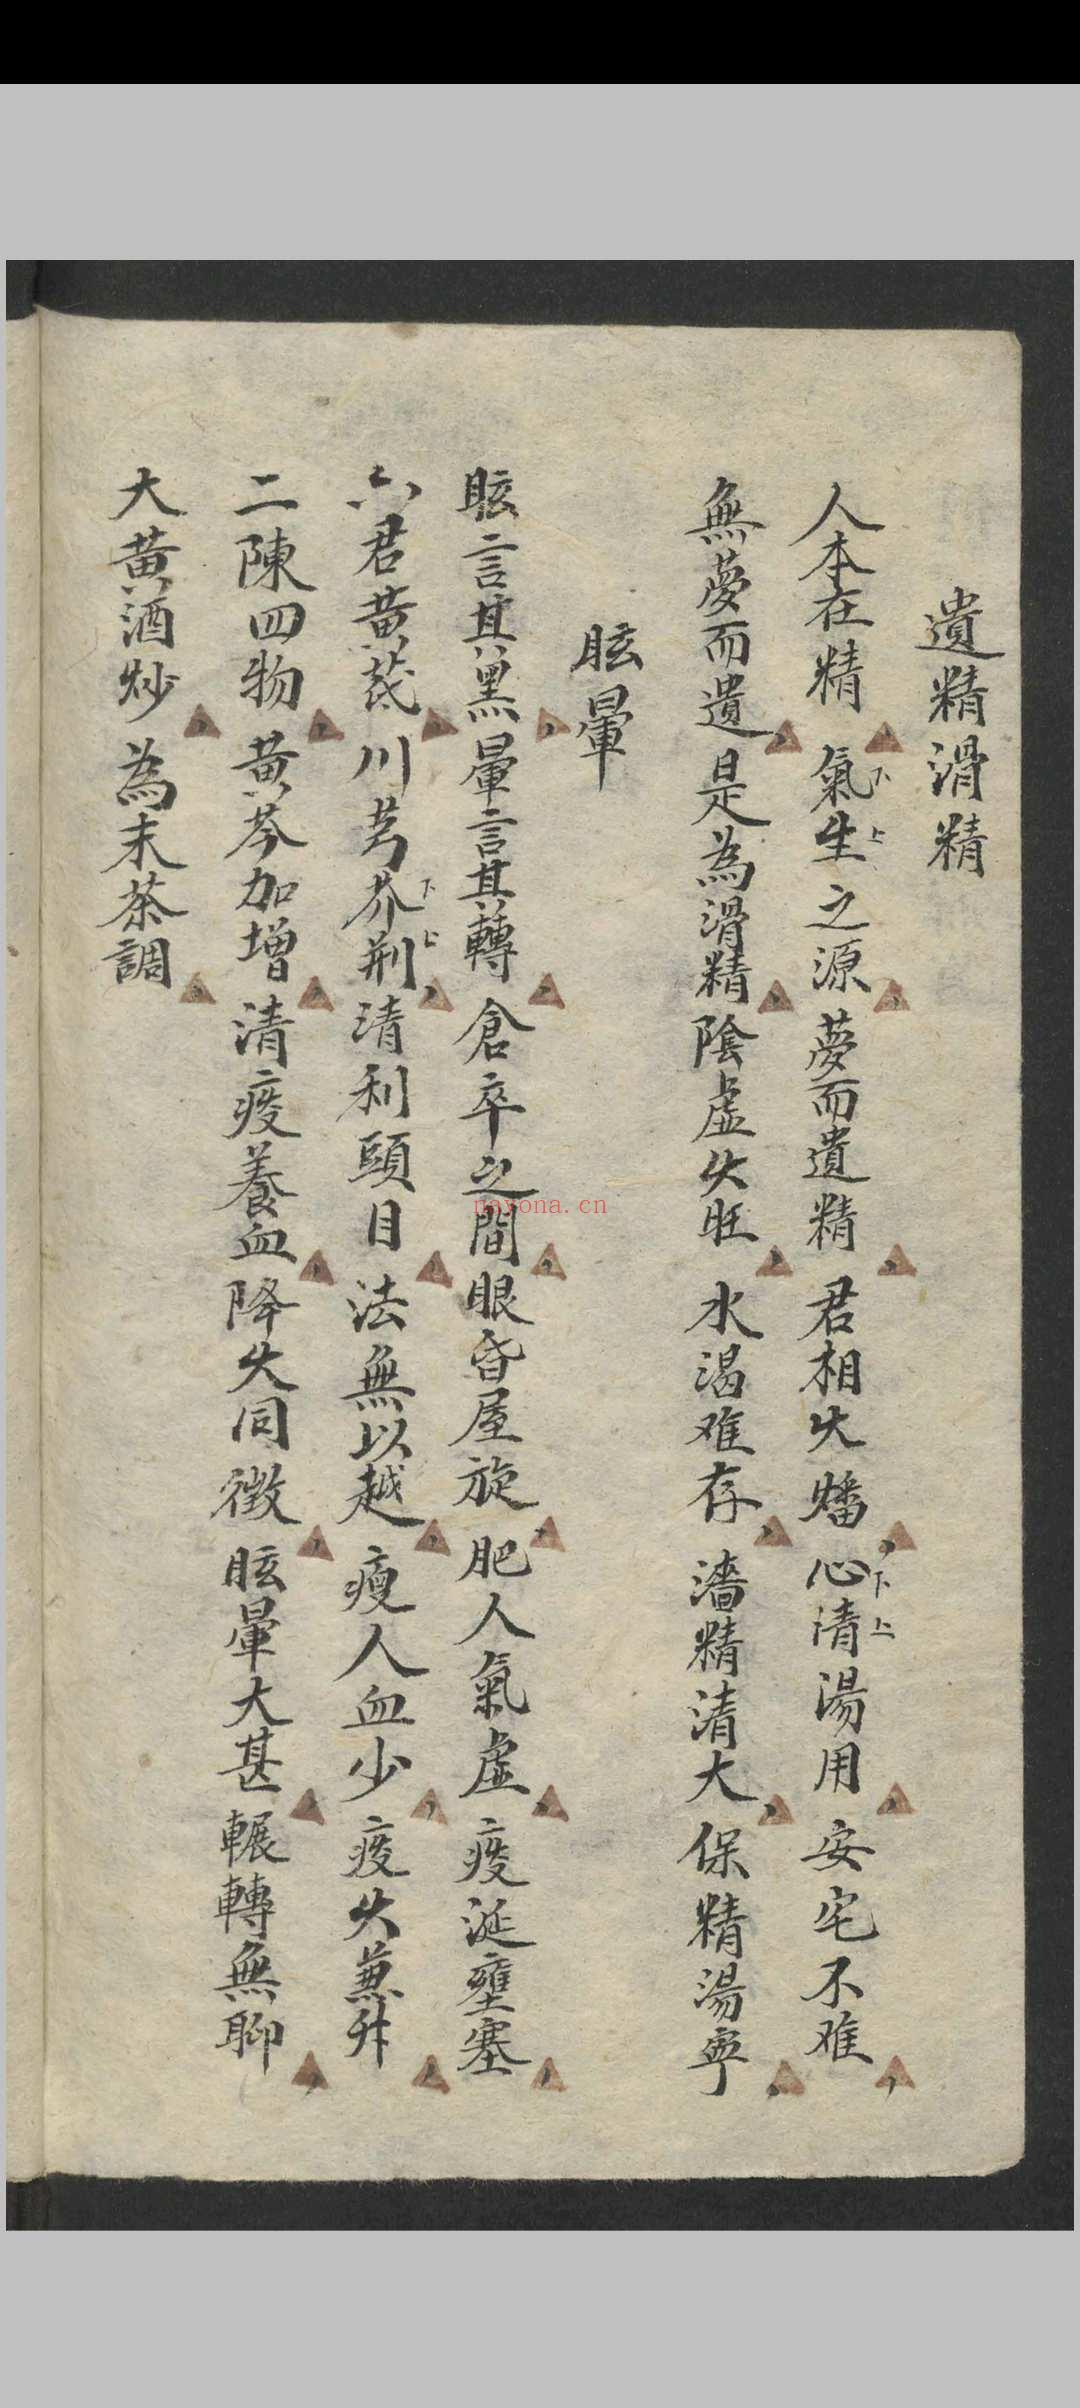 遺精滑精
人本在精氣生之源夢而遺精君相火燔心清湯用安宅不难
下上
下上
無夢而遺是為滑精陰虛火旺水渴难存濇精清大保精湯寧
眩暈
眩言其黑暈言其轉倉卒之間眼昏屋旋肥人氣虛痰涎壅塞
六君黄芪川芎芥荆清利頭目法無以越瘦人血少痰火兼升
下上
二陳四物黄芩加增清痰養血降火同徵眩暈大甚輾轉無聊
大黄酒炒為末茶調
nayona.cn